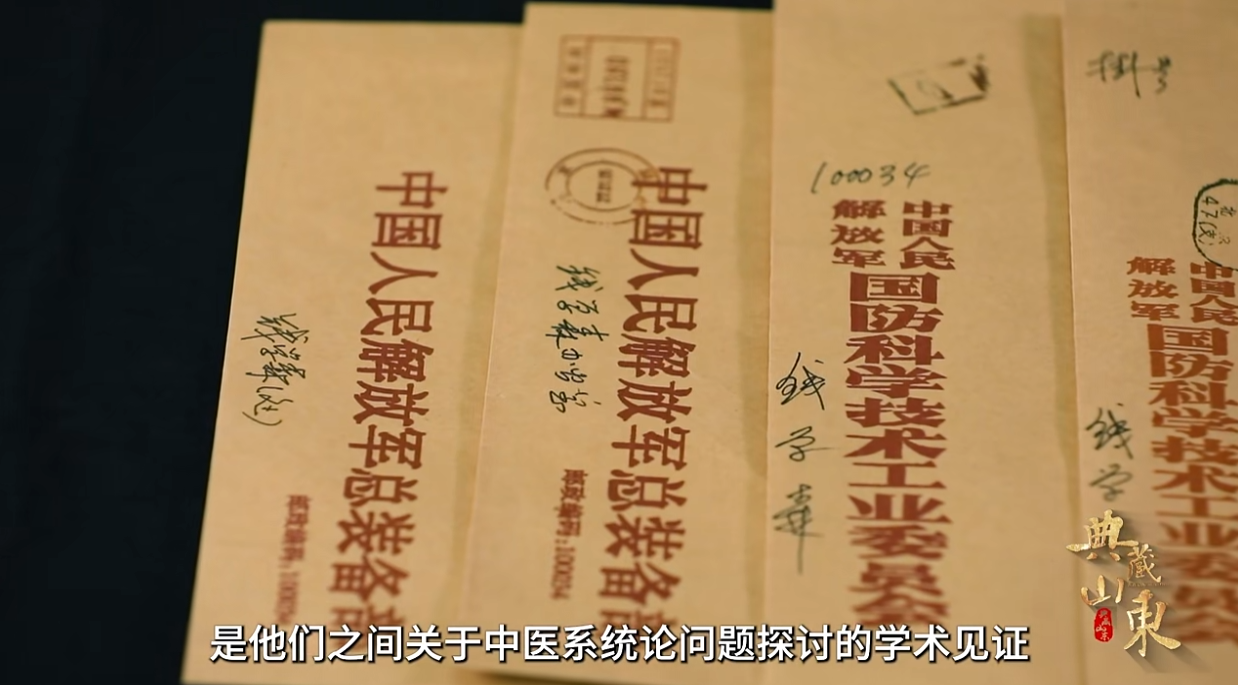 中国人民解放军总装备部
钱学森(迳)
邮政编码:100034
中国人民解放军总装备部
钱学森办公室
邮政编码:100034
100034
中国人民
解放军
国防科学技术工业委员会
钱学森
掛号
中国人民
解放军
国防科学技术工业委员会
钱学
典藏山東
是他们之间关于中医系统论问题探讨的学术见证